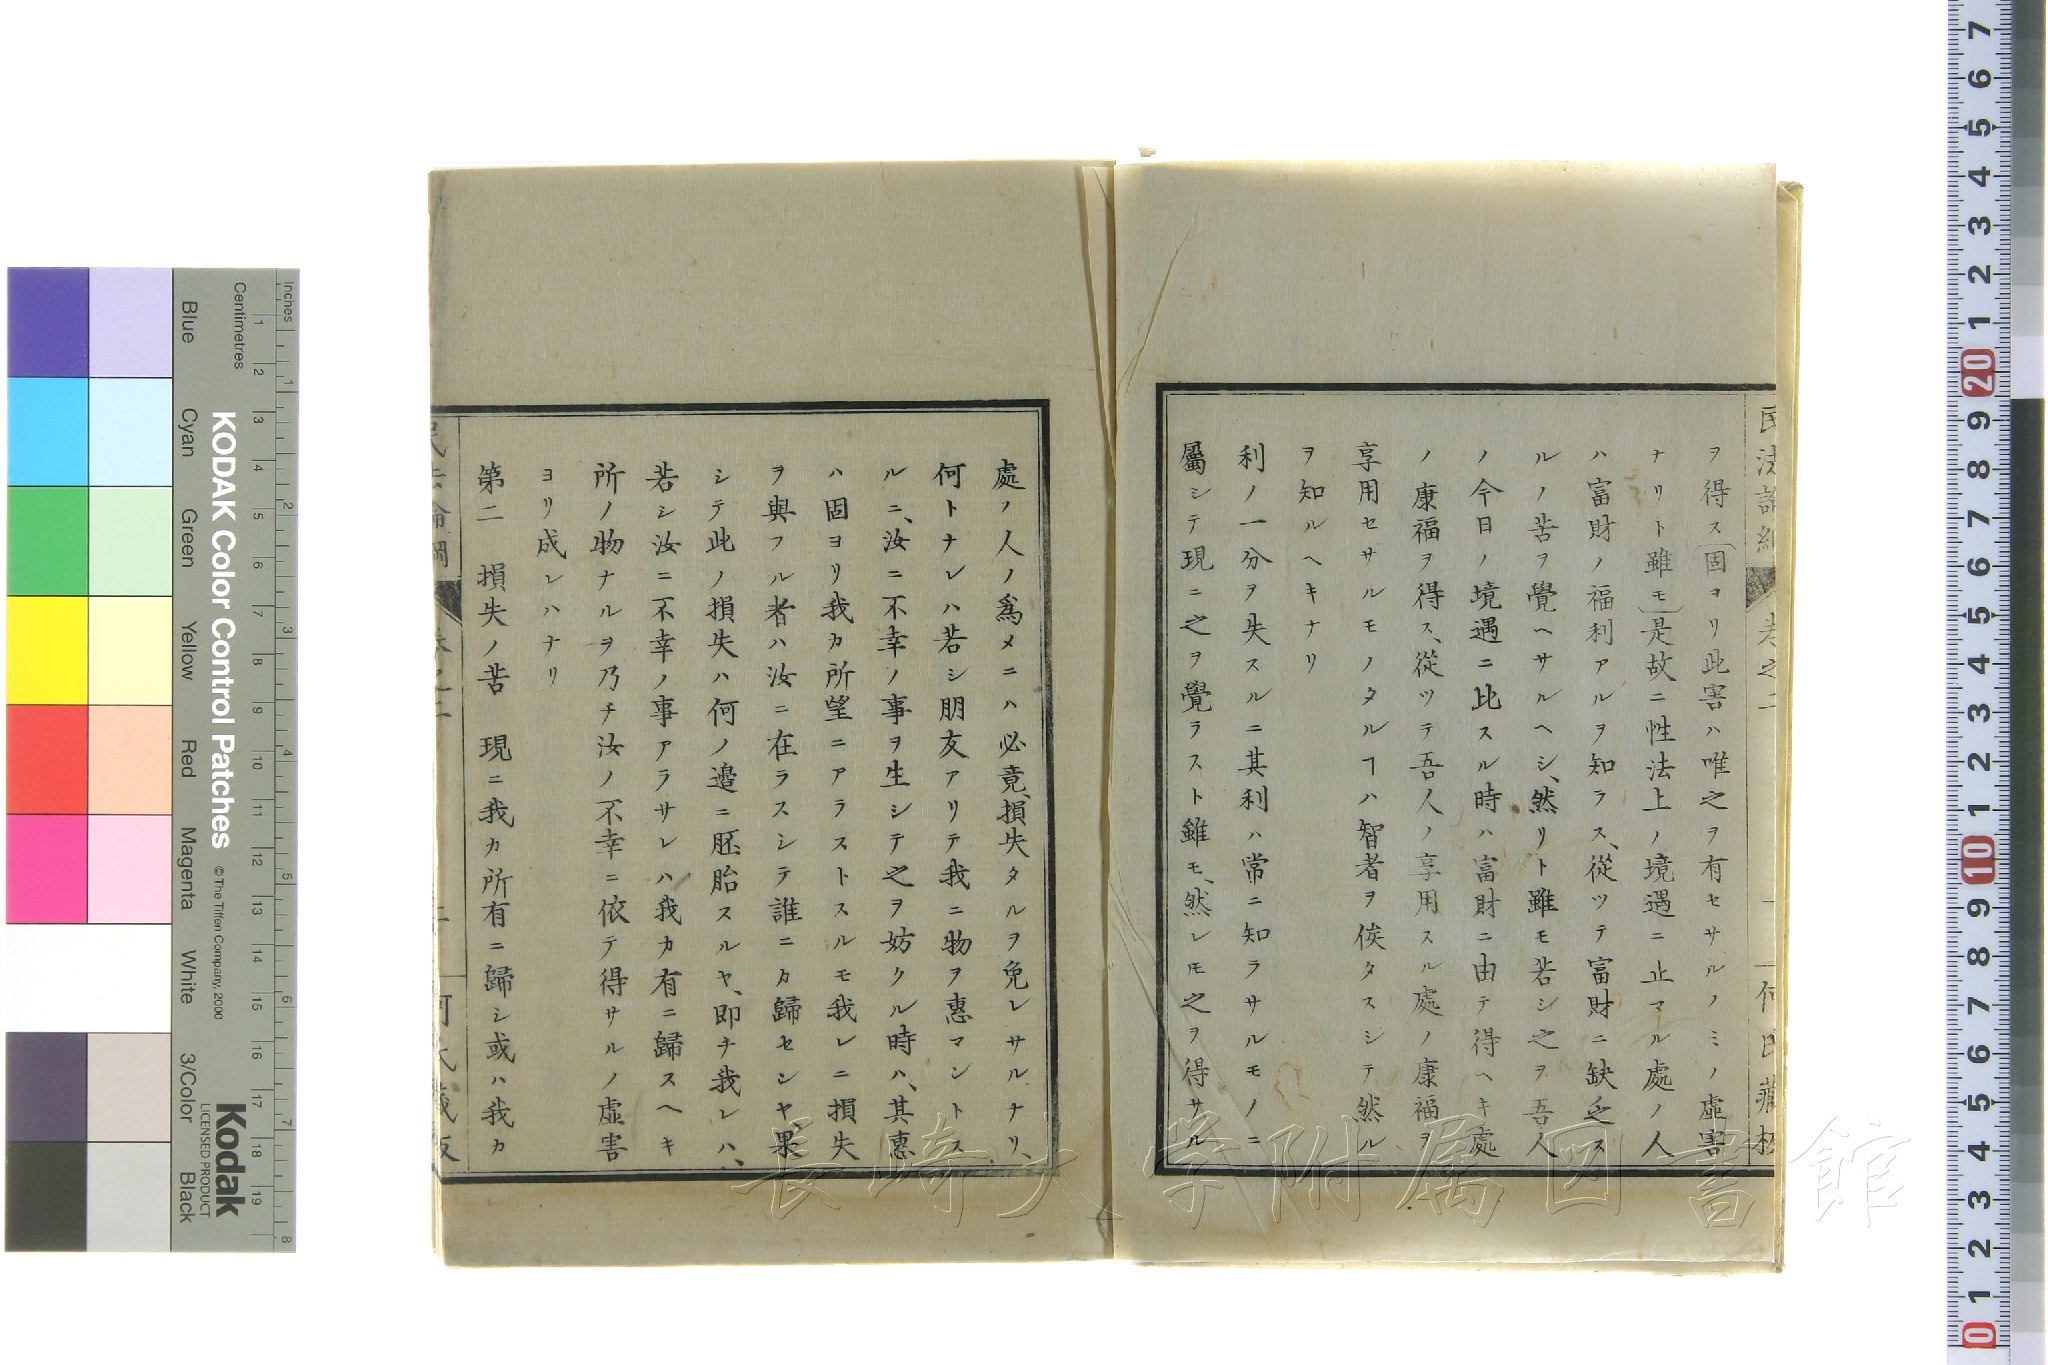 ヲ得ス(固ヨリ此害ハ唯之ヲ有セサルノミノ虛害
ナリト雖モ)是故ニ性法上ノ境遇ニ止マル處ノ人
ハ富財ノ福利アルヲ知ラス、從ツテ富財ニ缺乏ス
ルノ苦ヲ覺ヘサルヘシ、然リト雖モ若シ之ヲ吾人
ノ今日ノ境遇ニ比スル時ハ富財ニ由テ得ヘキ處
ノ康福ヲ得ス、從ツテ吾人ノ享用スル處ノ康福ヲ
享用セサルモノタルヿハ智者ヲ俟タスシテ然ル
ヲ知ルヘキナリ
利ノ一分ヲ失スルニ其利ハ常ニ知ラサルモノニ
屬シテ現ニ之ヲ覺ラスト雖モ、然レ𪜈之ヲ得サル
處ノ人ノ爲メニハ必竟損失タルヲ免レサルナリ、
何トナレハ若シ朋友アリテ我ニ物ヲ惠マントス
ルニ、汝ニ不幸ノ事ヲ生シテ之ヲ妨クル時ハ、其惠
ハ固ヨリ我カ所望ニアラストスルモ我レニ損失
ヲ與フル者ハ汝ニ在ラスシテ誰ニカ歸セシヤ、果
シテ此ノ損失ハ何ノ邊ニ胚胎スルヤ、即チ我レハ、
若シ汝ニ不幸ノ事アラサレハ我カ有ニ歸スヘキ
所ノ物ナルヲ乃チ汝ノ不幸ニ依テ得サルノ虛害
ヨリ成レハナリ
第二 損失ノ苦 現ニ我カ所有ニ歸シ或ハ我カ
民法論綱 卷之二 何氏藏板
長崎大学附属図書館
KODAK Color Control Patches
© The Tiffen Company, 2000
Kodak
LICENSED PRODUCT
Inches
Centimetres
Blue
Cyan
Green
Yellow
Red
Magenta
White
3/Color
Black